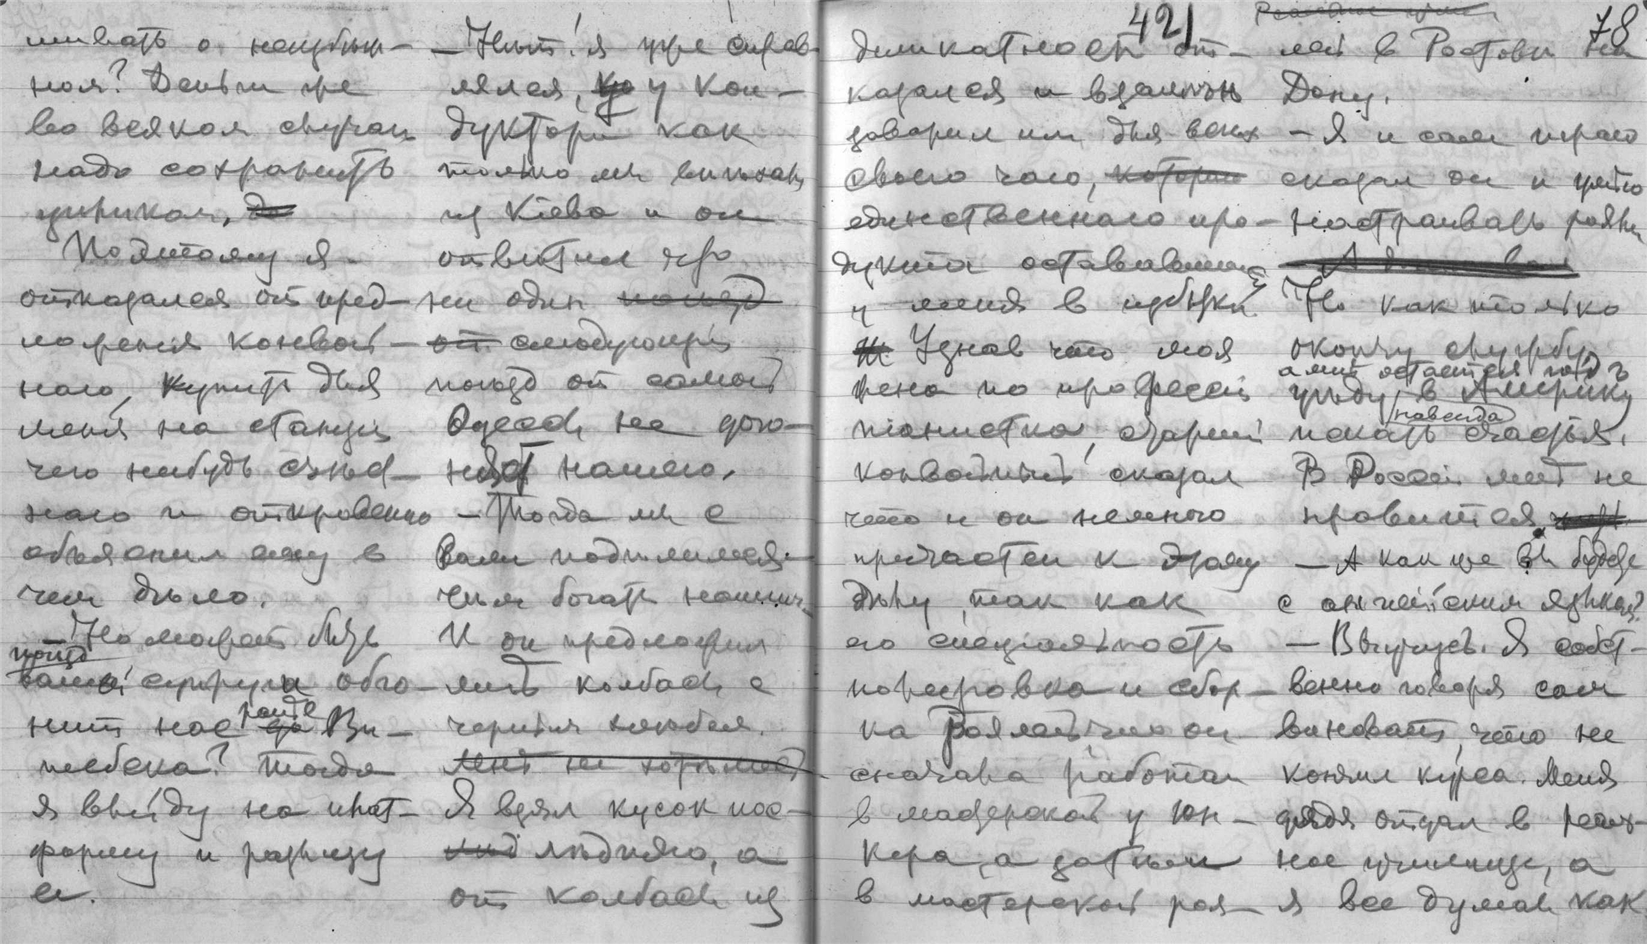 шивать о
ноя? Деньги же
во всяком случаи
надо сохранить
цирикам, до
Поэтому я
отказался от пред-
ложения конвой-
ного, купить для
меня на станции
чего нибудь съѣст-
ного и откровенно
объяснил ему в
чем дѣло.
Но может быть
поѣзд
вашей супруги обго-
нит нас раньше до Ви-
тебска? тогда
я выйду на плат-
форму и разыщу
ее.
— Нѣт! я уже справ-
лялся, у кон-
дуктора как
только мы выѣхали
из Кіева и он
отвѣтил что
ни один поѣзд
от слѣдующій
поѣзд от самой
Одессы не дого-
няет нашего.
— Тогда мы с
Вами подѣлимся
чѣм богаты
И он предложил
мнѣ колбасы с
черным хлѣбом.
Я взял кусок пос-
лѣдняго, а
от колбасы из
421
78
деликатности от-
казался и взамѣн
заварил им для всех
своего чаю, которы
единственнаго про-
дукта оставшаго
у меня в избытке
Узнав что моя
жена по професси
піанистка, старшій
конвойный сказал
что и он немного
причастен к этому
дѣлу так как
его спеціальность
полировка и сбор-
ка Роялей, что он
сначала работал
в мастерской у Юн-
кера, а затѣм
в мастерской роя-
лей в Ростове на
Дону.
— Я и сам играю
сказал он и умѣю
настраивать рояли
Но как только
окончу службу
а мнѣ остается год
уѣду в Америку
навсегда
искать счастья.
В Россіи мнѣ не
нравится
— А как же Вы будете
с английским языком?
— Выучусь. Я собст-
венно говоря сам
виноват, что не
кончил курса. Меня
дядя отдал в реаль-
ное училище, а
я все думал как